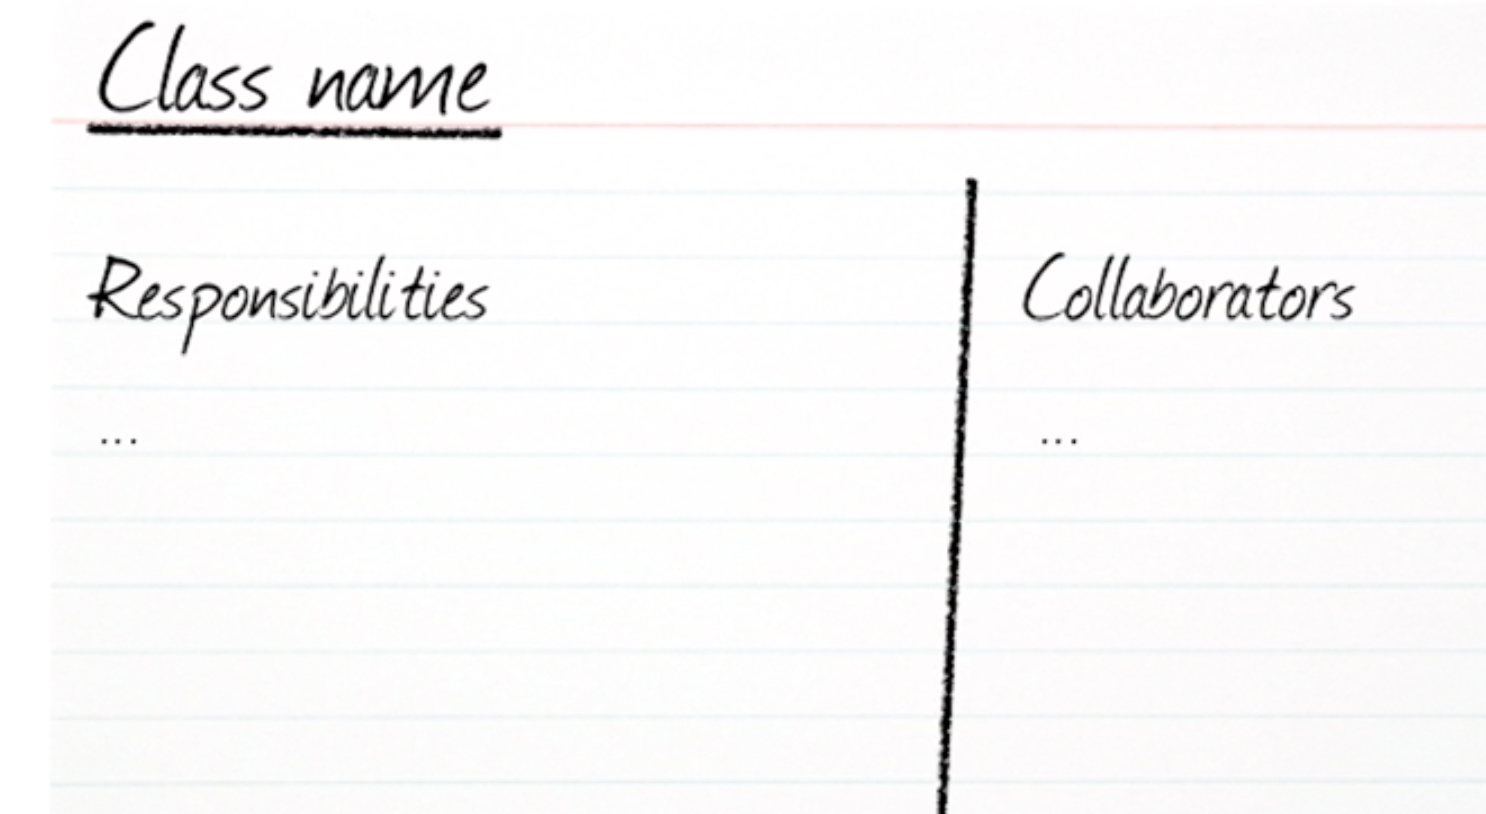 Class name
Responsibilities
Collaborators
...
...